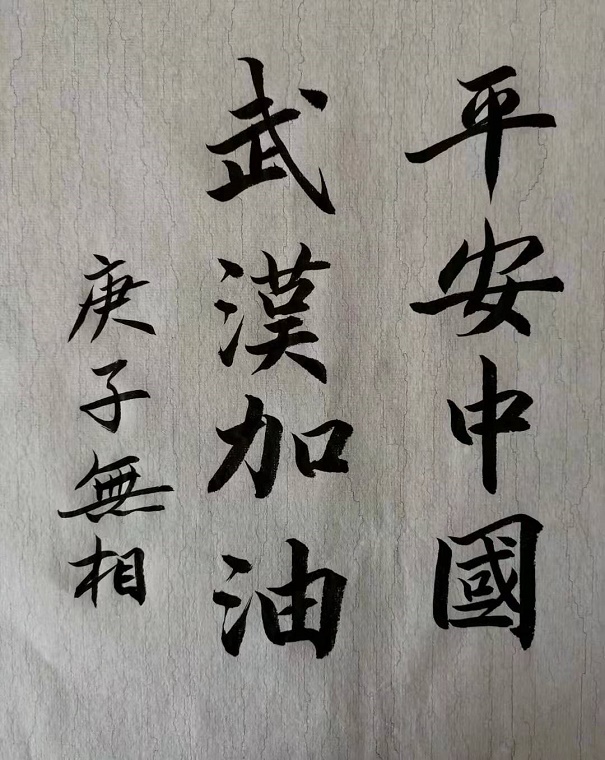 平安中國
武漢加油
庚子無相